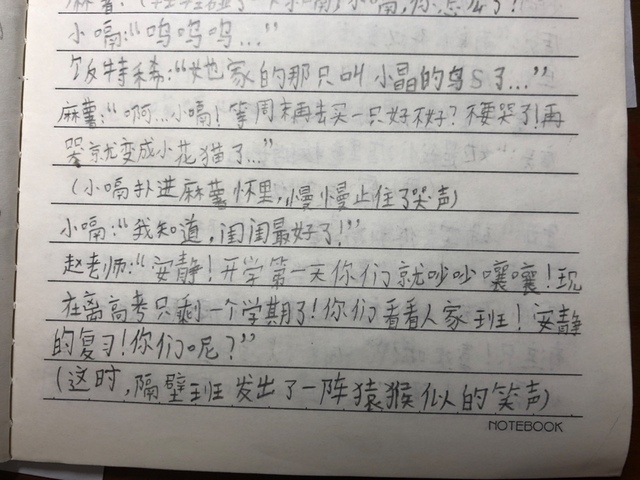 麻薯:(轻轻碰了一下小嗝)小嗝,你怎么了!
小嗝:“呜呜呜...”
饭特稀:“她家的那只叫小晶的鸟S了...”
麻薯:“啊...小嗝!等周末再去买一只好不好?不要哭了!再
哭就变成小花猫了...”
(小嗝扑进麻薯怀里,慢慢止住了哭声)
小嗝:“我知道,闺闺最好了!”
赵老师:“安静!开学第一天你们就吵吵嚷嚷!现
在离高考只剩一个学期了!你们看看人家班!安静
的复习!你们呢?”
(这时,隔壁班发出了一阵猿猴似的笑声)
NOTEBOOK